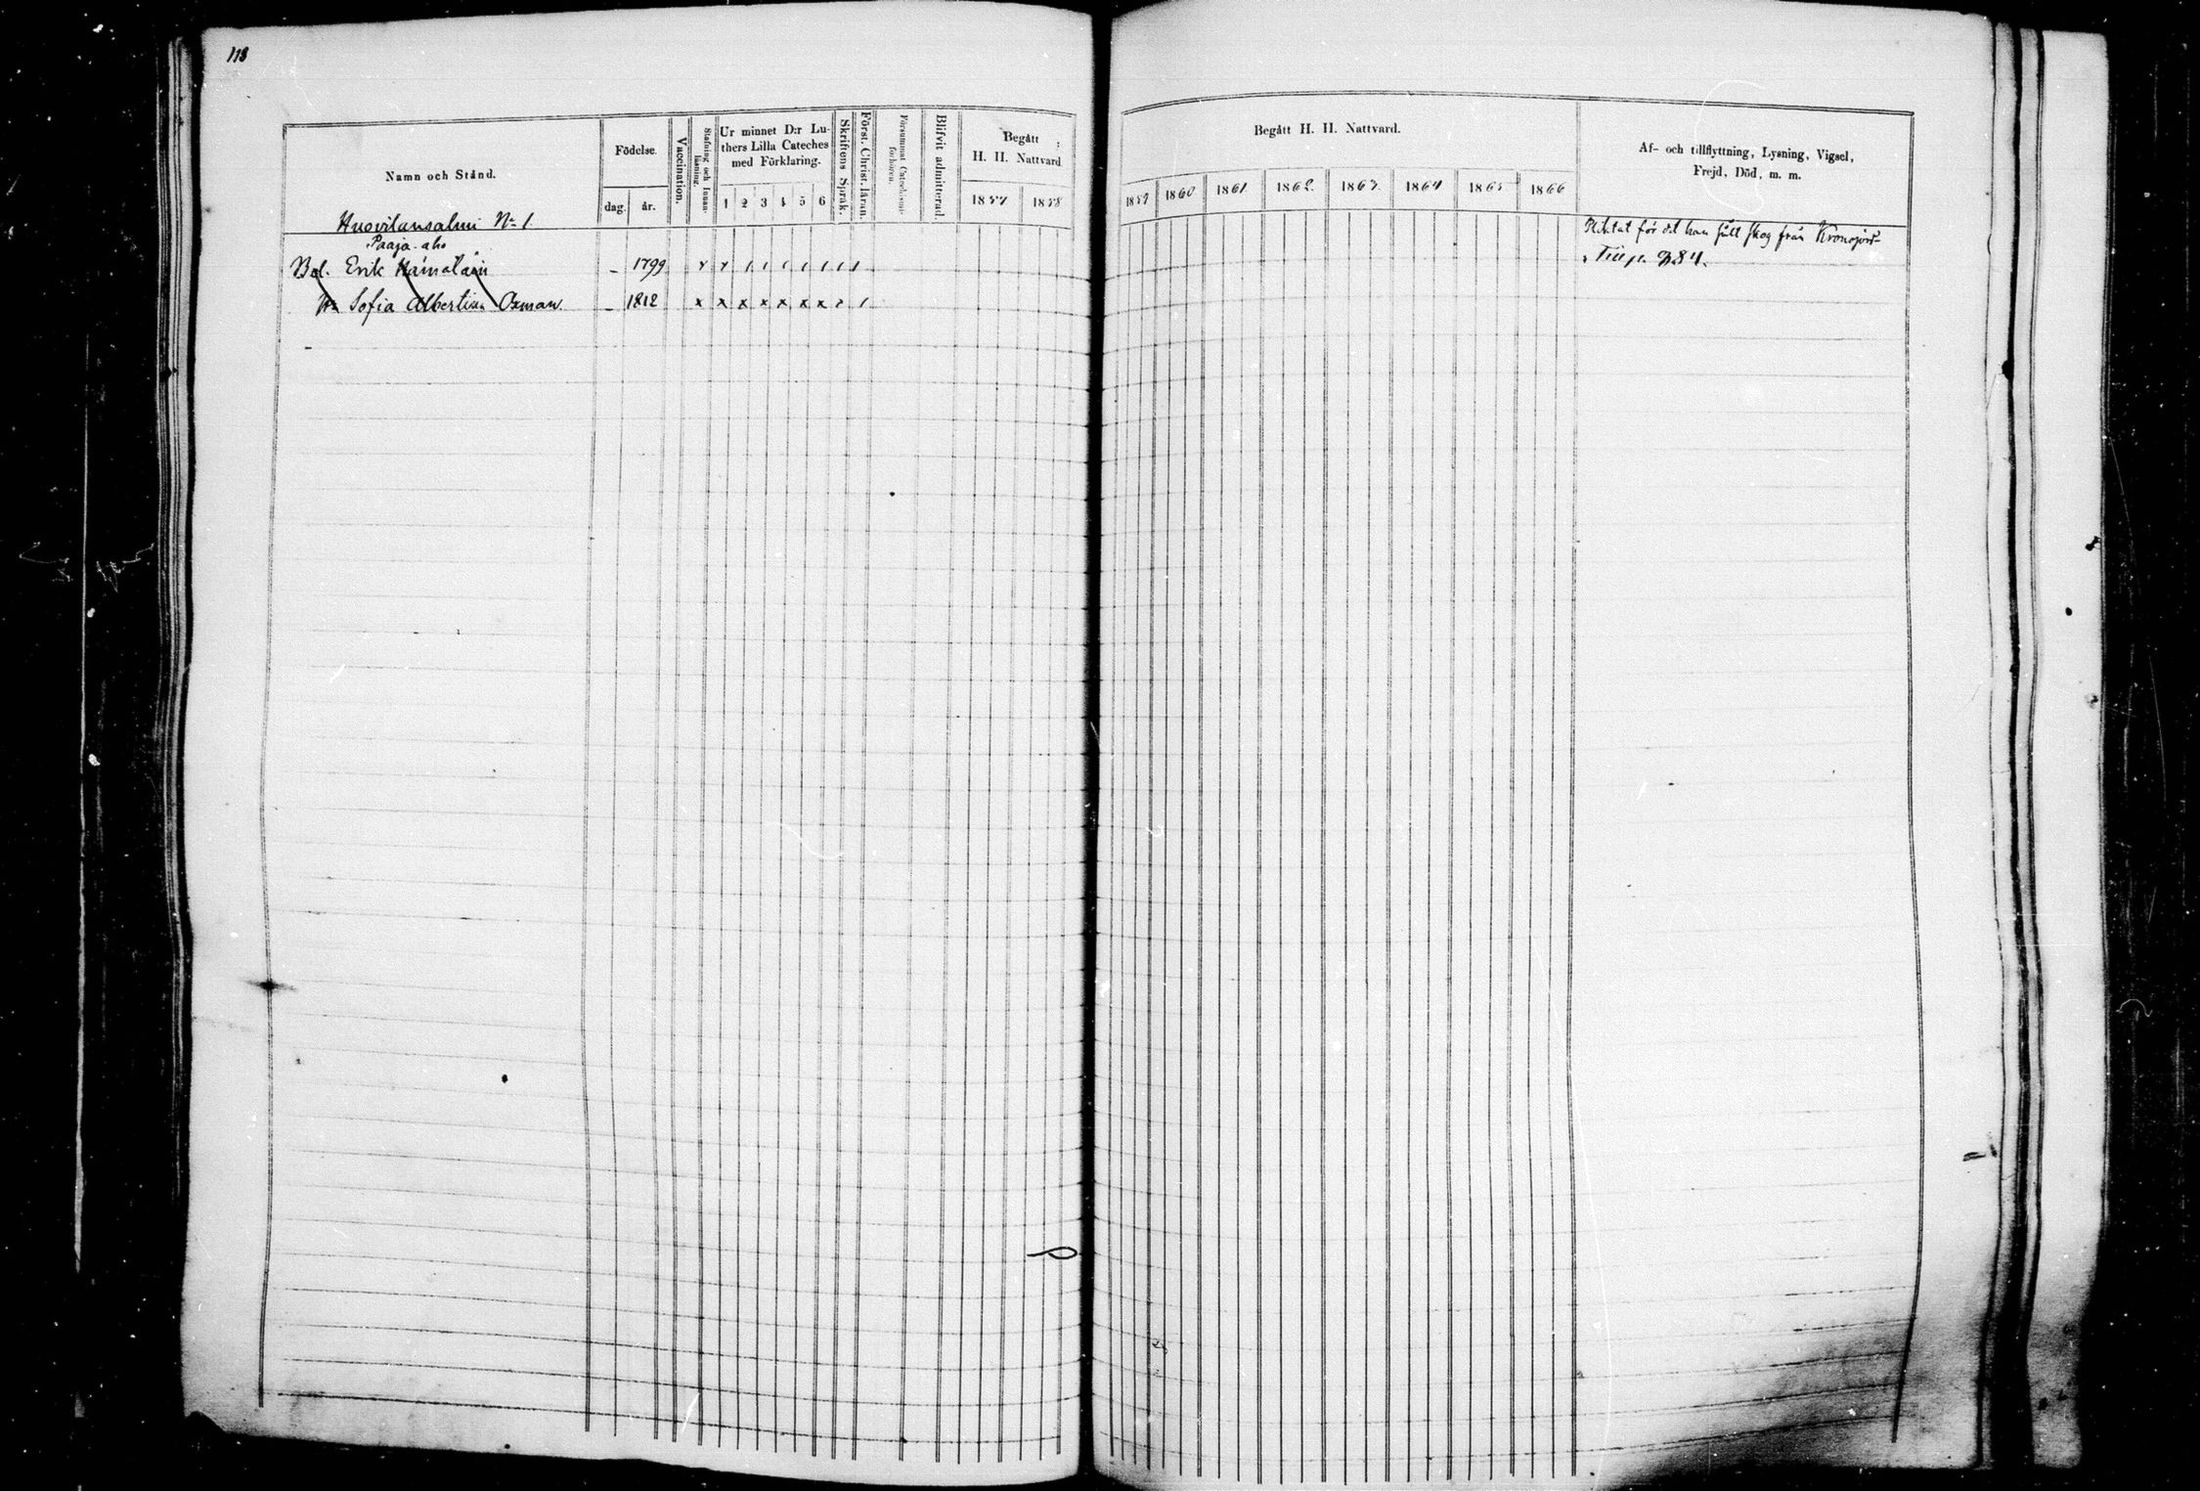 118
Namn och Stånd.
Födelse.
dag.
år.
Vaccination.
Stafning och Innan-
läsning.
Ur minnet D:r Lu-
thers Lilla Cateches
med Förklaring.
1 2 3 4 5 6
Skriftens Språk.
Först. Christ. läran.
Försummat Catechismi-
förhören.
Blifvit admitterad
Begått
H. H. Nattvard
1857
1858
Begått H. H. Nattvard.
1859 1860 1861 1862 1863 1864 1865 1866
Af- och tillflyttning, Lysning, Vigsel,
Frejd, Död, m. m.
Huovilansalmi No 1.
Paaja-aho
Erik Hämäläin
- 1799
Sofia Albertina Oxman.
- 1812
för det han fält skog från
284.